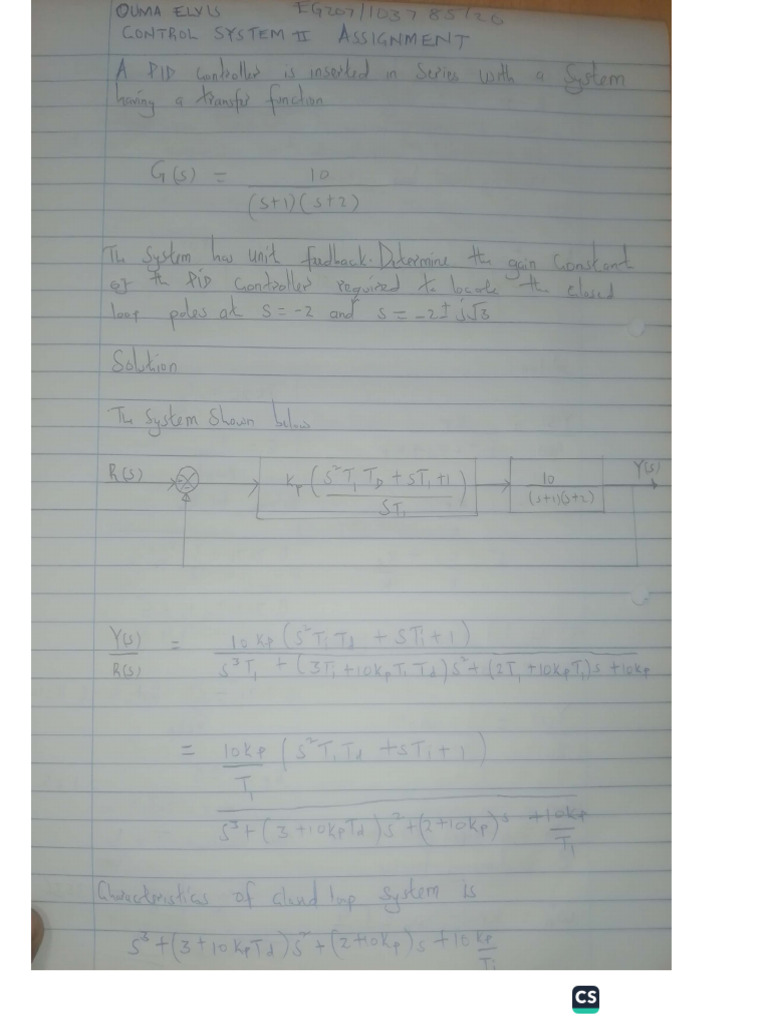 OUMA ELVIS EG207/103785/20
CONTROL SYSTEM II ASSIGNMENT
A PID Controller is inserted in Series with a System
having a transfer function
G(s) = 10
(s+1)(s+2)
The System has unit feedback. Determine the gain Constant
of the PiD Controller required to locate the closed
loop poles at s = -2 and s = -2 ± j√3
Solution
The System Shown below
R(s) Kp (s²Ti TD + sTi +1) 10 Y(s)
STi (s+1)(s+2)
Y(s) = 10 Kp (s²Ti Td + STi + 1)
R(s) s³Ti + (3Ti + 10Kp Ti Td)s² + (2Ti + 10KpTi)s + 10Kp
= 10Kp (s²Ti Td + sTi + 1)
Ti
s³ + (3 + 10KpTd)s² + (2+10Kp)s + 10Kp
Ti
Characteristics of closed loop system is
s³ + (3 + 10KpTd)s² + (2+10Kp)s + 10Kp
Ti
CS